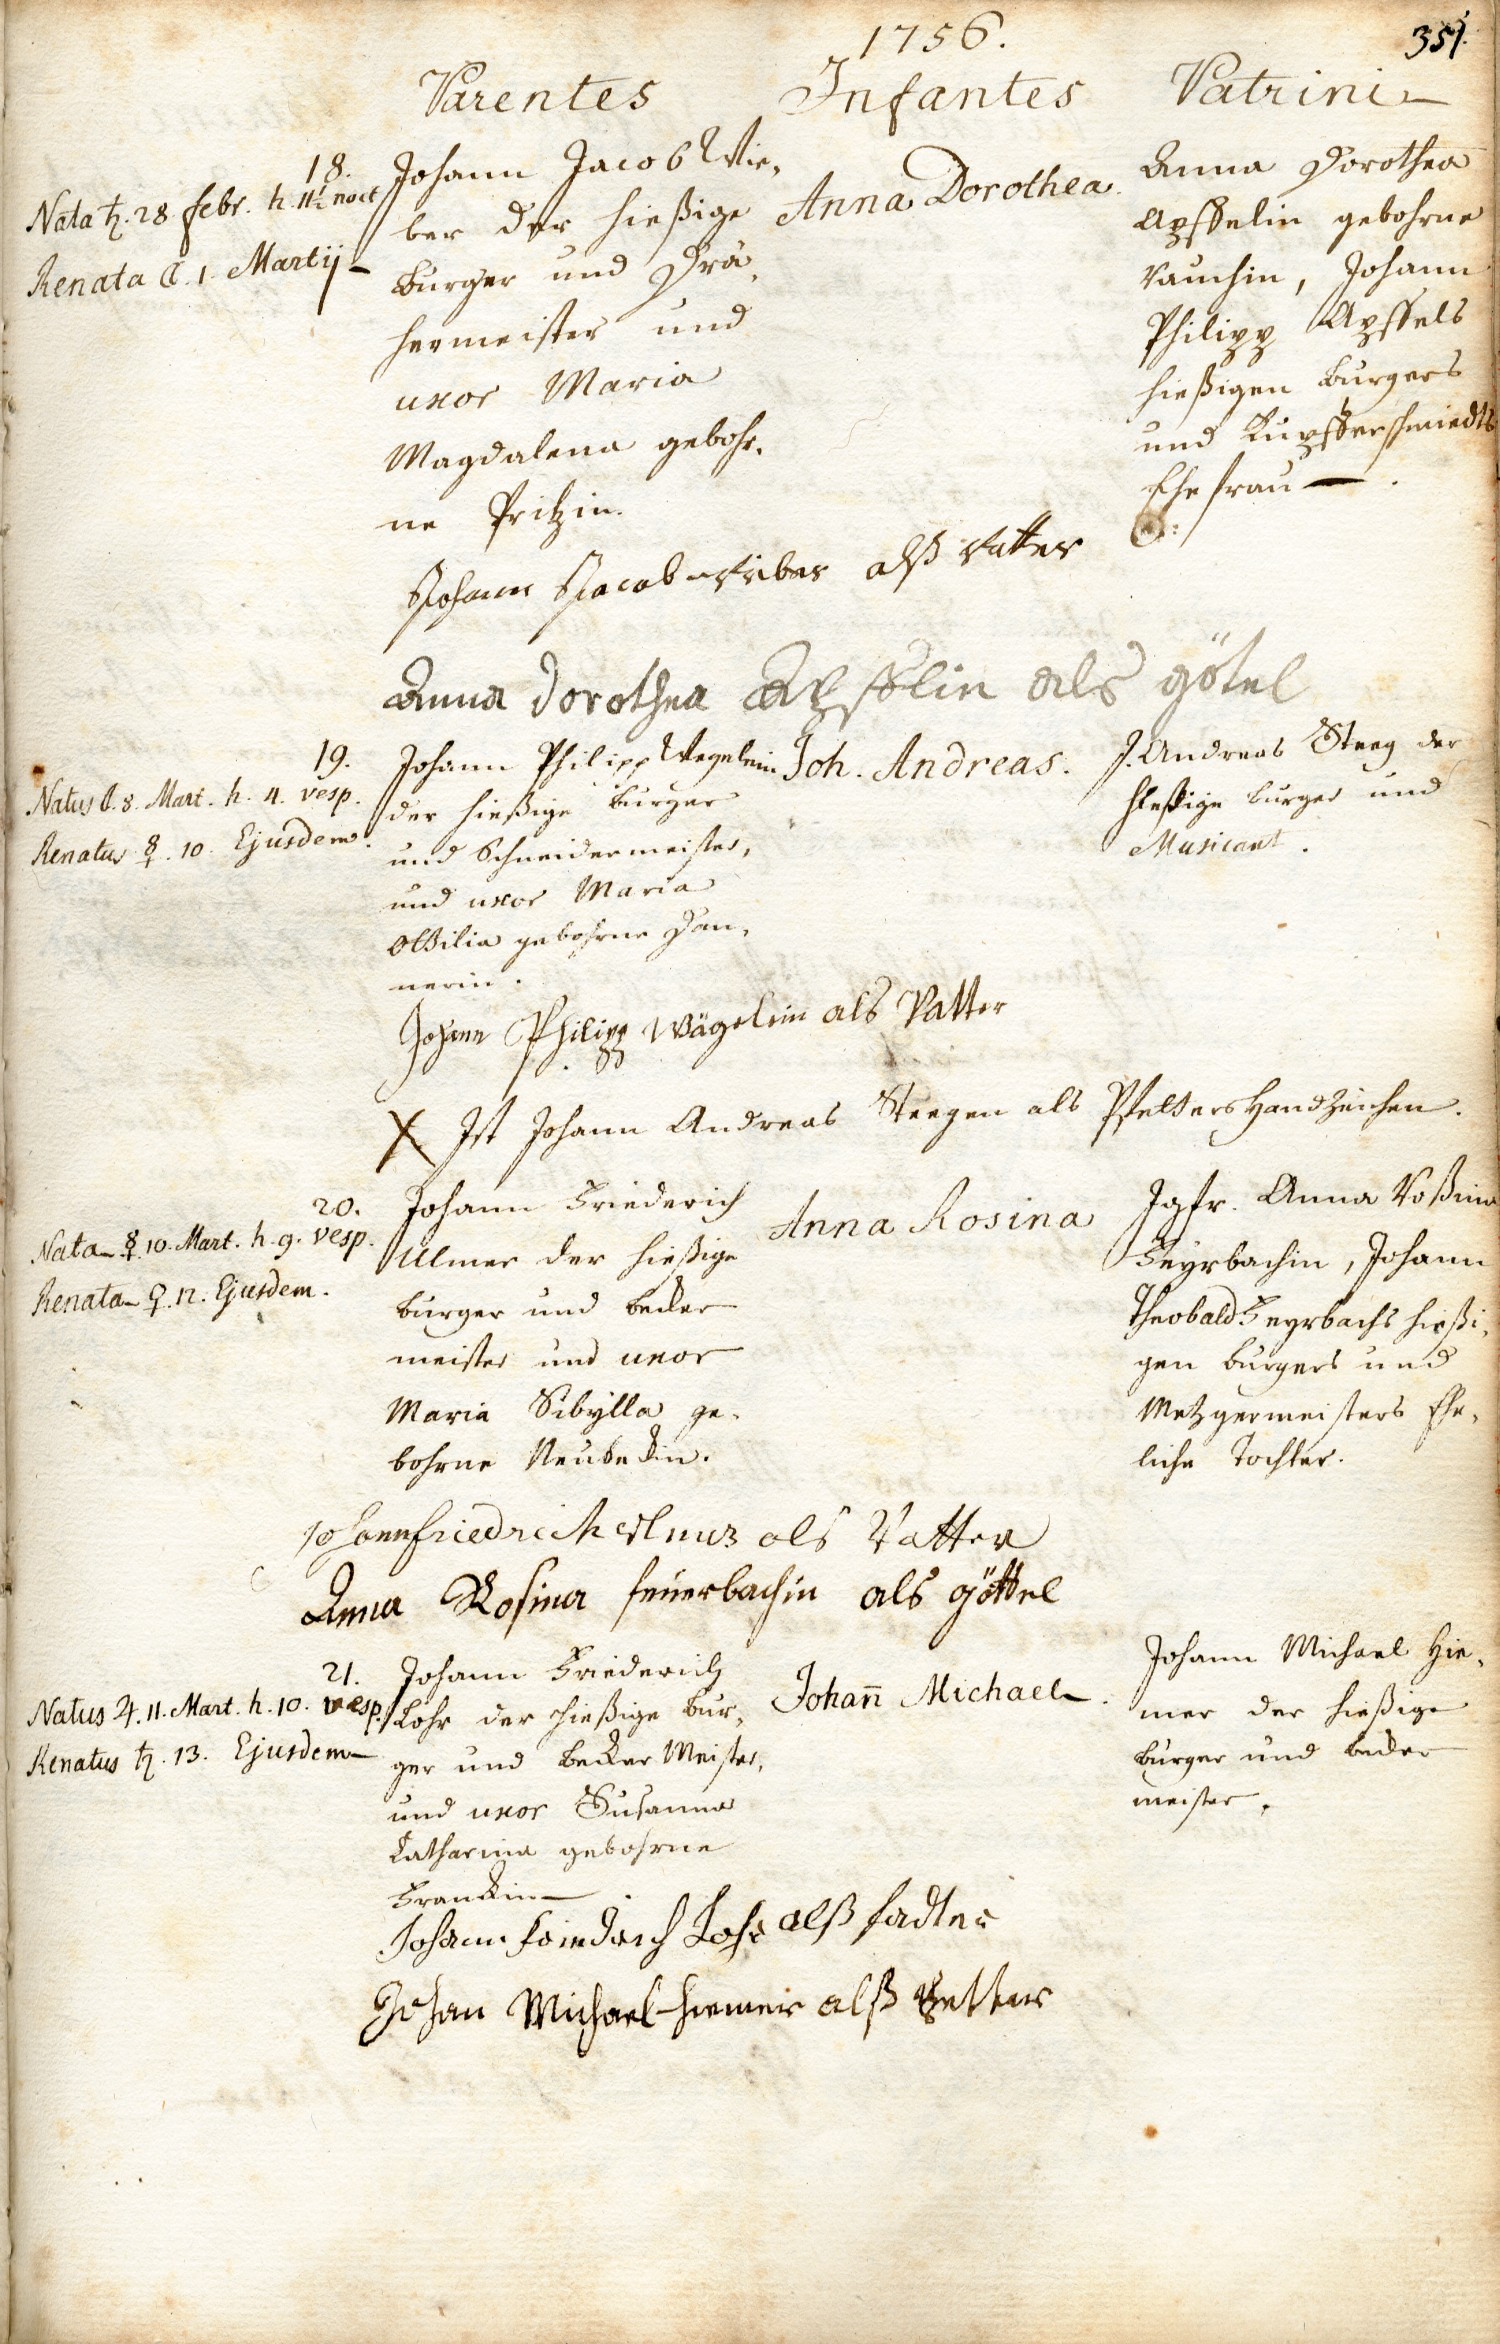 1756.
351.
Parentes Infantes Patrini
18.
Nata ♄. 28 febr. h. 11½ noct
Renata ☾. 1. Martij
Johann Jacob Wie-
ber der hießige
Burger und Drä-
hermeister und
uxor Maria
Magdalena gebohr-
ne Pritzin.
Anna Dorothea
Anna Dorothea
Apffelin gebohrne
Rauchin, Johann
Philipp Apffels
hießigen Burgers
und Kupfferschmiedts
Ehefrau
Johann Jacob Wiber alß Vatter
Anna Dorothea Apfflin als götel
19.
Natus ☾. 8. Mart. h. 4. vesp.
Renatus ☿. 10 Ejusdem.
Johann Philipp Wegelein
der hießige Burger
und Schneidermeister,
und uxor Maria
Ottilia gebohrne Dan-
nerin.
Joh. Andreas.
J. Andreas Steeg der
hießige Burger und
Musicant.
Johann Philipp Wägelein als Vatter
X Ist Johann Andreas Steegen als Pfetters Handzeichen.
20.
Nata ☿. 10. Mart. h. 9. vesp.
Renata ♀. 12. Ejusdem.
Johann Friederich
Ulmer der hießige
Burger und Becker
meister und uxor
Maria Sibylla ge-
bohrne Neubeckin.
Anna Rosina
Jgfr. Anna Roßina
Feyrbachin, Johann
Theobald Feyrbachs hießi-
gen Burgers und
Metzgermeisters Ehe-
liche Tochter.
Johann friedrich als Vatter
Anna Rosina feuerbachin als göttel
21.
Natus ♃. 11. Mart. h. 10. vesp.
Renatus ♄. 13. Ejusdem
Johann Friederich
Lohr der hießige Bur-
ger und Becker Meister,
und uxor Susanna
Catharina gebohrne
Franckin
Johann Michael.
Johann Michael Hie-
mer der hießige
Burger und Becker
meister.
Johann friedrich Lohr alß fadter
Johan Michael hiemer alß Petter